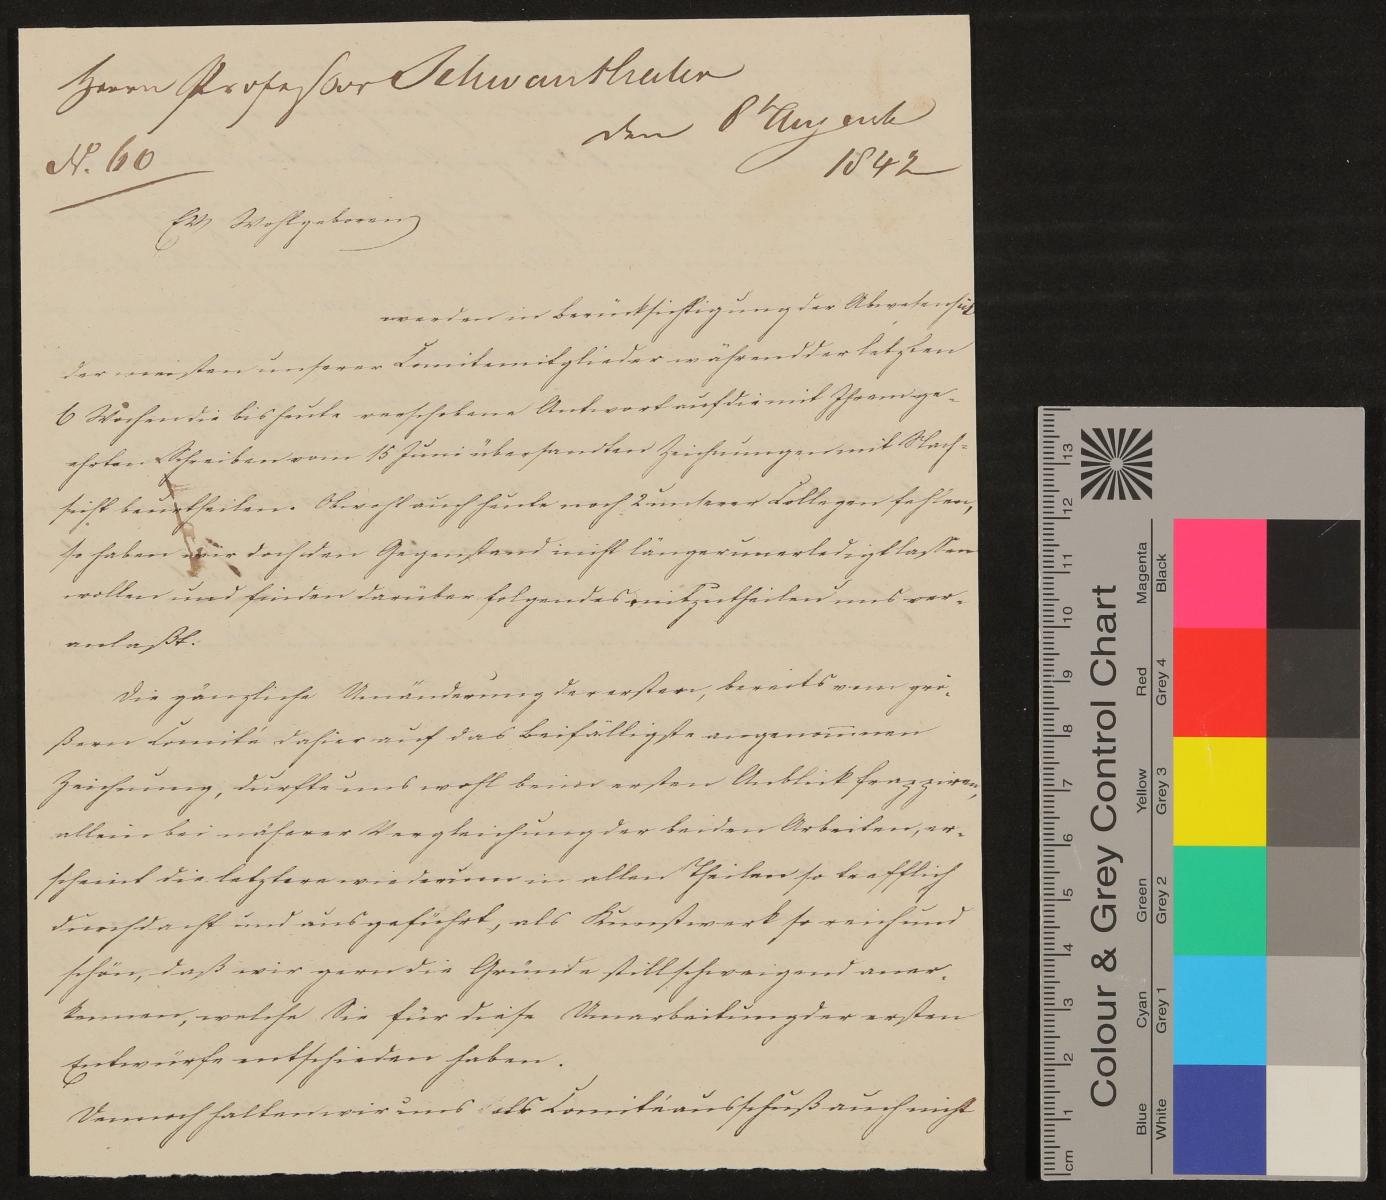 Herrn Professor Schwanthaler
den 8t August
1842
N. 60
Ew Wohlgeboren
werden in Berücksichtigung der Abwesenheit
der meisten unserer Comitemitglieder während der letzten
6 Wochen die bis heute verschobene Antwort auf die mit Ihrem ge-
ehrten Schreiben vom 15 Juni übersandten Zeichnungen mit Nach-
sicht beurtheilen. Obwohl auch heute noch 2 unserer Collegen fehlen,
so haben wir doch den Gegenstand nicht länger unerledigt lassen
wollen und finden darüber folgendes mitzutheilen uns ver-
anlaßt:
Die gänzliche Umänderung der ersten, bereits vom grö-
ßern Comité dahier auf das Beifälligste angenommenen
Zeichnung, durfte uns wohl beim ersten Anblick frappiren,
allein bei näherer Vergleichung der beiden Arbeiten, er-
scheint die letztere wiederum in allen Theilen so trefflich
durchdacht und ausgeführt, als Kunstwerk so reich und
schön, daß wir gern die Gründe stillschweigend aner-
kennen, welche Sie für diese Umarbeitung der ersten
Entwürfe entschieden haben.
Dennoch halten wir uns als Comitéausschuß auch nicht
Colour & Grey Control Chart
Blue Cyan Green Yellow Red Magenta
White Grey 1 Grey 2 Grey 3 Grey 4 Black
cm 1 2 3 4 5 6 7 8 9 10 11 12 13